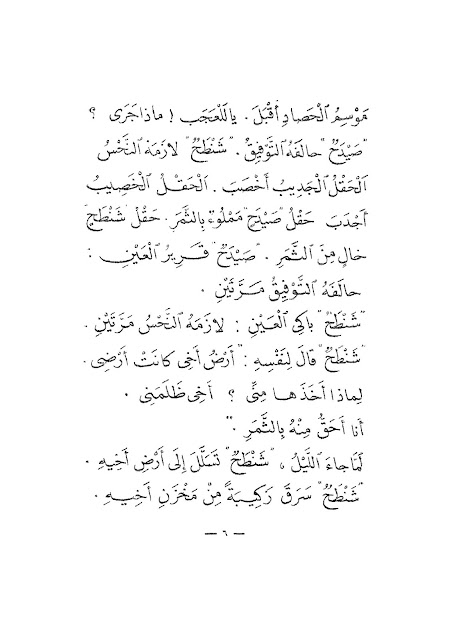 مَوْسِمُ ٱلْحَصادِ أَقْبَلَ. يا لَلْعَجَبِ! ماذا جَرَى ؟
"صَيْدَحٌ" حالَفَهُ ٱلتَّوْفِيقُ. "شَنْطَحٌ" لازَمَهُ ٱلنَّحْسُ
ٱلْحَقْلُ ٱلْجَدِيبُ أَخْصَبَ. ٱلْحَقْلُ ٱلْخَصِيبُ
أَجْدَبَ حَقْلُ "صَيْدَحٍ" مَمْلُوءٌ بِالثَّمَرِ. حَقْلُ "شَنْطَحٍ"
خالٍ مِنَ ٱلثَّمَرِ. "صَيْدَحٌ" قَرِيرُ ٱلْعَيْنِ :
حالَفَهُ ٱلتَّوْفِيقُ مَرَّتَيْنِ.
"شَنْطَحٌ" باكِي ٱلْعَيْنِ : لازَمَهُ ٱلنَّحْسُ مَرَّتَيْنِ.
"شَنْطَحٌ" قالَ لِنَفْسِهِ : "أَرْضُ أَخِي كانَتْ أَرْضِى.
لِماذا أَخَذَها مِنِّى ؟ أَخِى ظَلَمَنِى.
أَنا أَحَقُّ مِنْهُ بِالثَّمَرِ."
لَمّا جاءَ ٱللَّيْلُ، "شَنْطَحٌ" تَسَلَّلَ إِلَى أَرْضِ أَخِيهِ.
"شَنْطَحٌ" سَرَقَ زَكِيبَةً مِنْ مَخْزَنِ أَخِيهِ.
— ٦ —